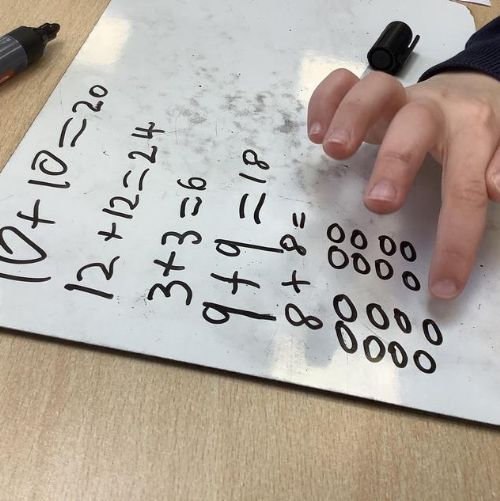 10 + 10 = 20
12 + 12 = 24
3 + 3 = 6
9 + 9 = 18
8 + 8 =